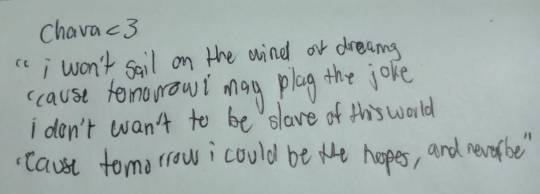 Chava<3
"i won't sail on the wind of dreams
'cause tomorrow i may play the joke
i don't wan't to be slave of this world
'Cause tomorrow i could be the hopes, and never be"